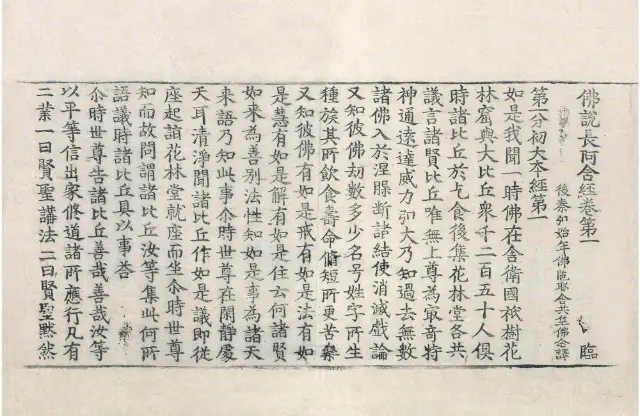 佛說長阿含經卷第一 臨
後秦弘始年佛陁耶舍共竺佛念譯
第一分初大夲經第一
如是我聞一時佛在舍衛國祇樹花
林窟與大比丘衆千二百五十人俱
時諸比丘於乞食後集花林堂各共
議言諸賢比丘唯無上尊為㝡奇特
神通遠達威力弘大乃知過去無數
諸佛入於涅槃斷諸結使消滅戲論
又知彼佛劫數多少名号姓字所生
種族其所飲食壽命脩短所更苦樂
又知彼佛有如是戒有如是法有如
是慧有如是解有如是住云何諸賢
如来為善別法性知如是事為諸天
来語乃知此事尒時世尊在閑靜處
天耳清淨聞諸比丘作如是議即從
座起詣花林堂就座而坐尒時世尊
知而故問謂諸比丘汝等集此何所
語議時諸比丘具以事荅
尒時世尊告諸比丘善哉善哉汝等
以平等信出家修道諸所應行凡有
二業一曰賢聖講法二曰賢聖默然